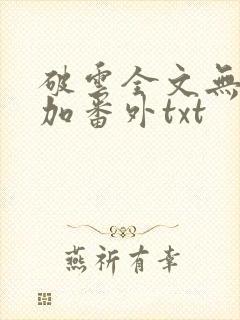 破雲全文無
加番外txt
燕祈有幸